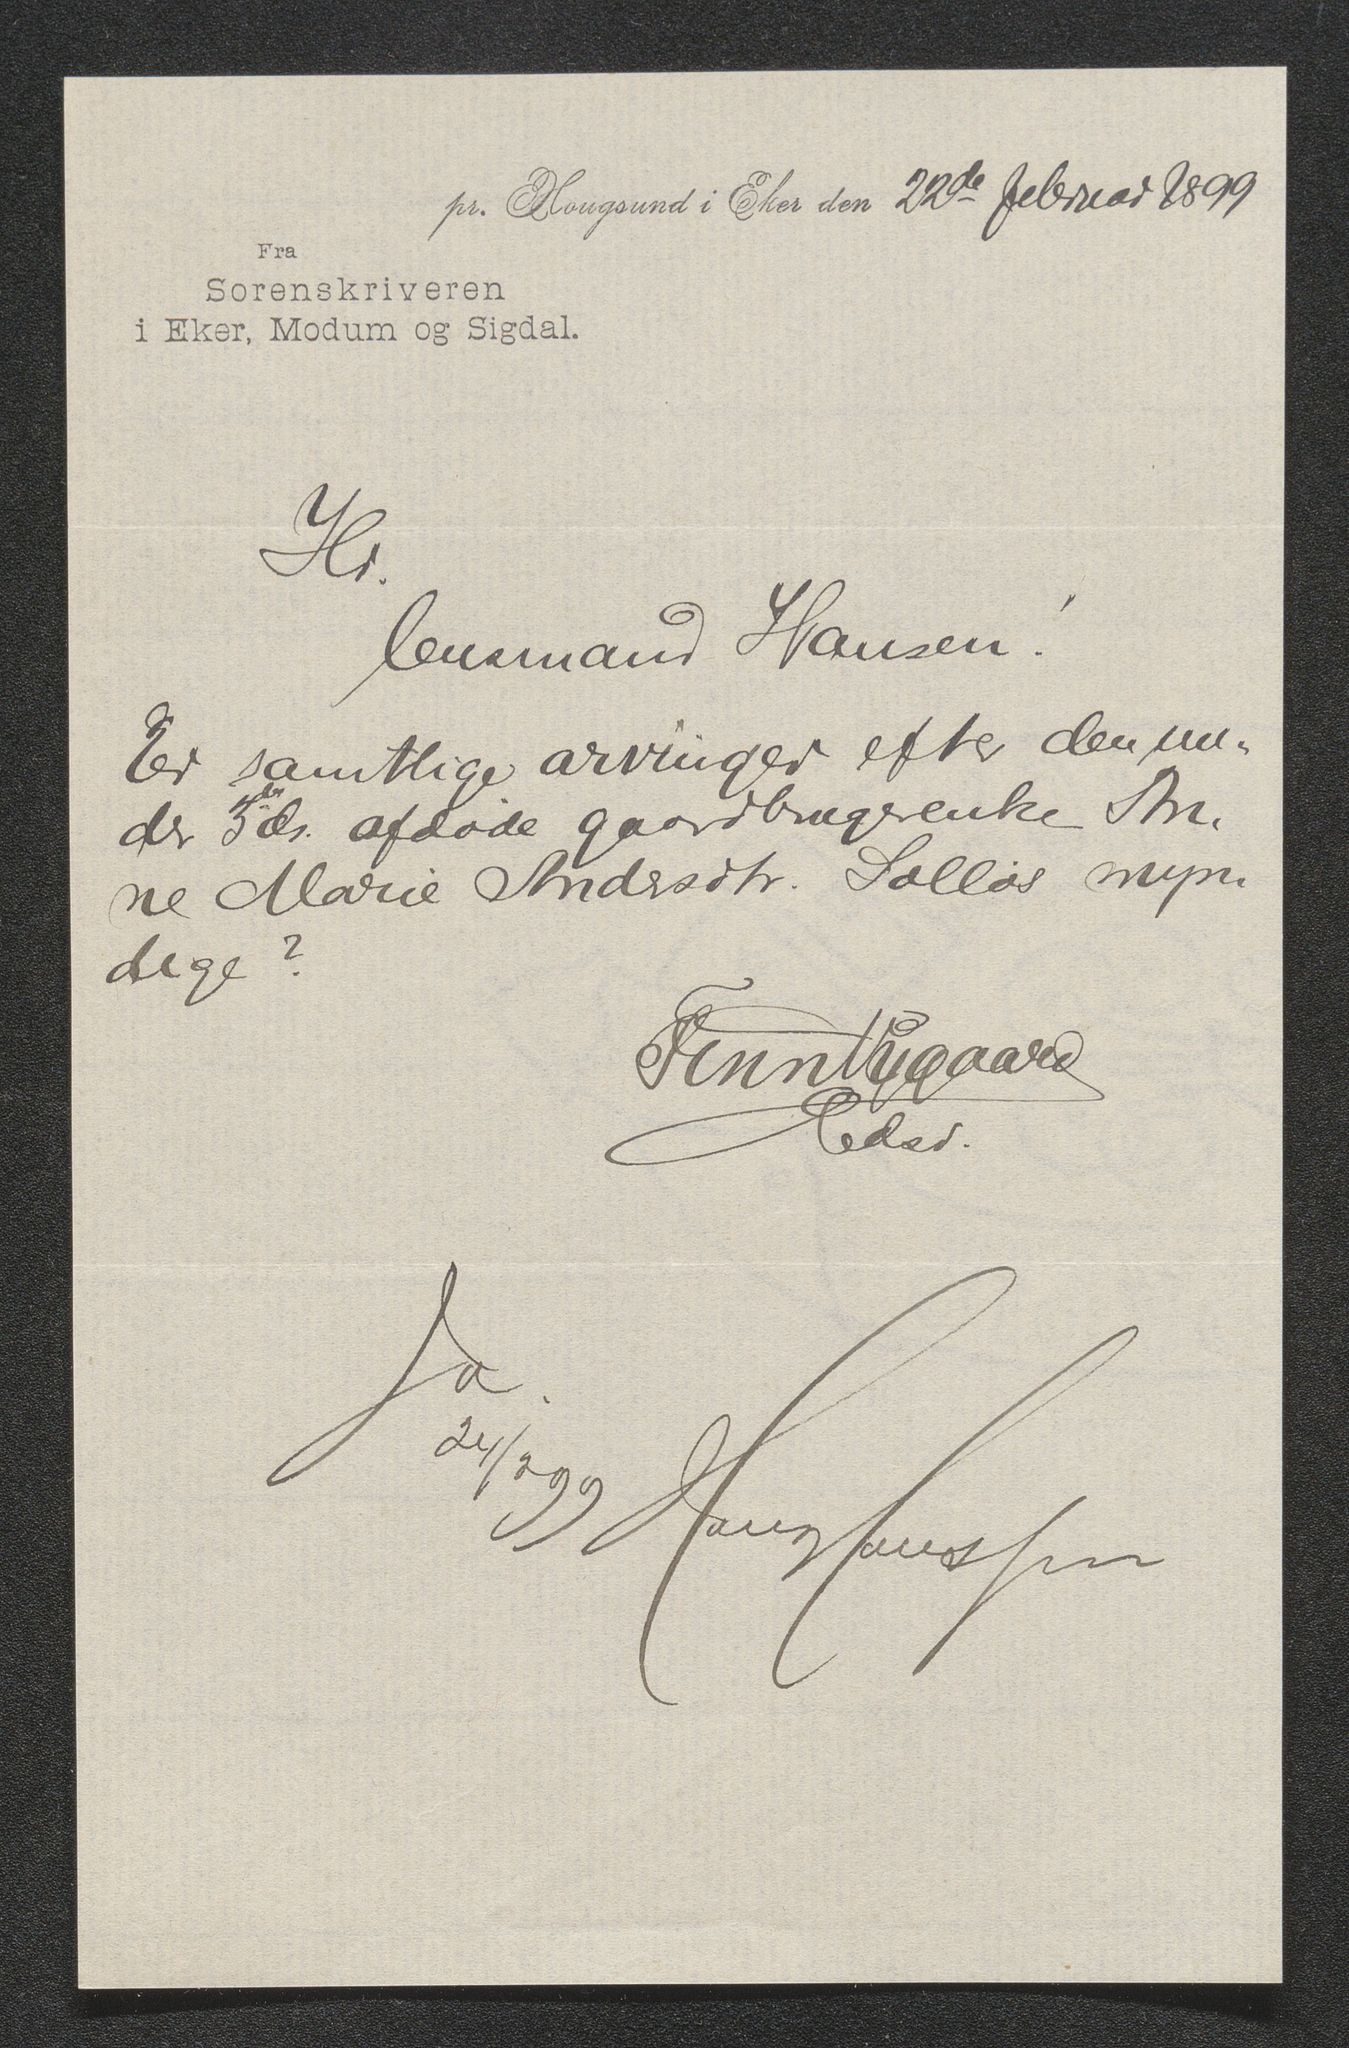 pr. Hougsund i Eker den 22de februar 1899
Fra
Sorenskriveren
i Eker, Modum og Sigdal.
Hr.
lensmand Hansen!
Er samtlige arvinger efter den un-
der 5te ds. afdøde gaardbrugerenke An-
ne Marie Andersdtr. Solløs myn-
dige?
Finn Nygaard
Edsv.
Ja.
24/2 99 Hans Hanssen